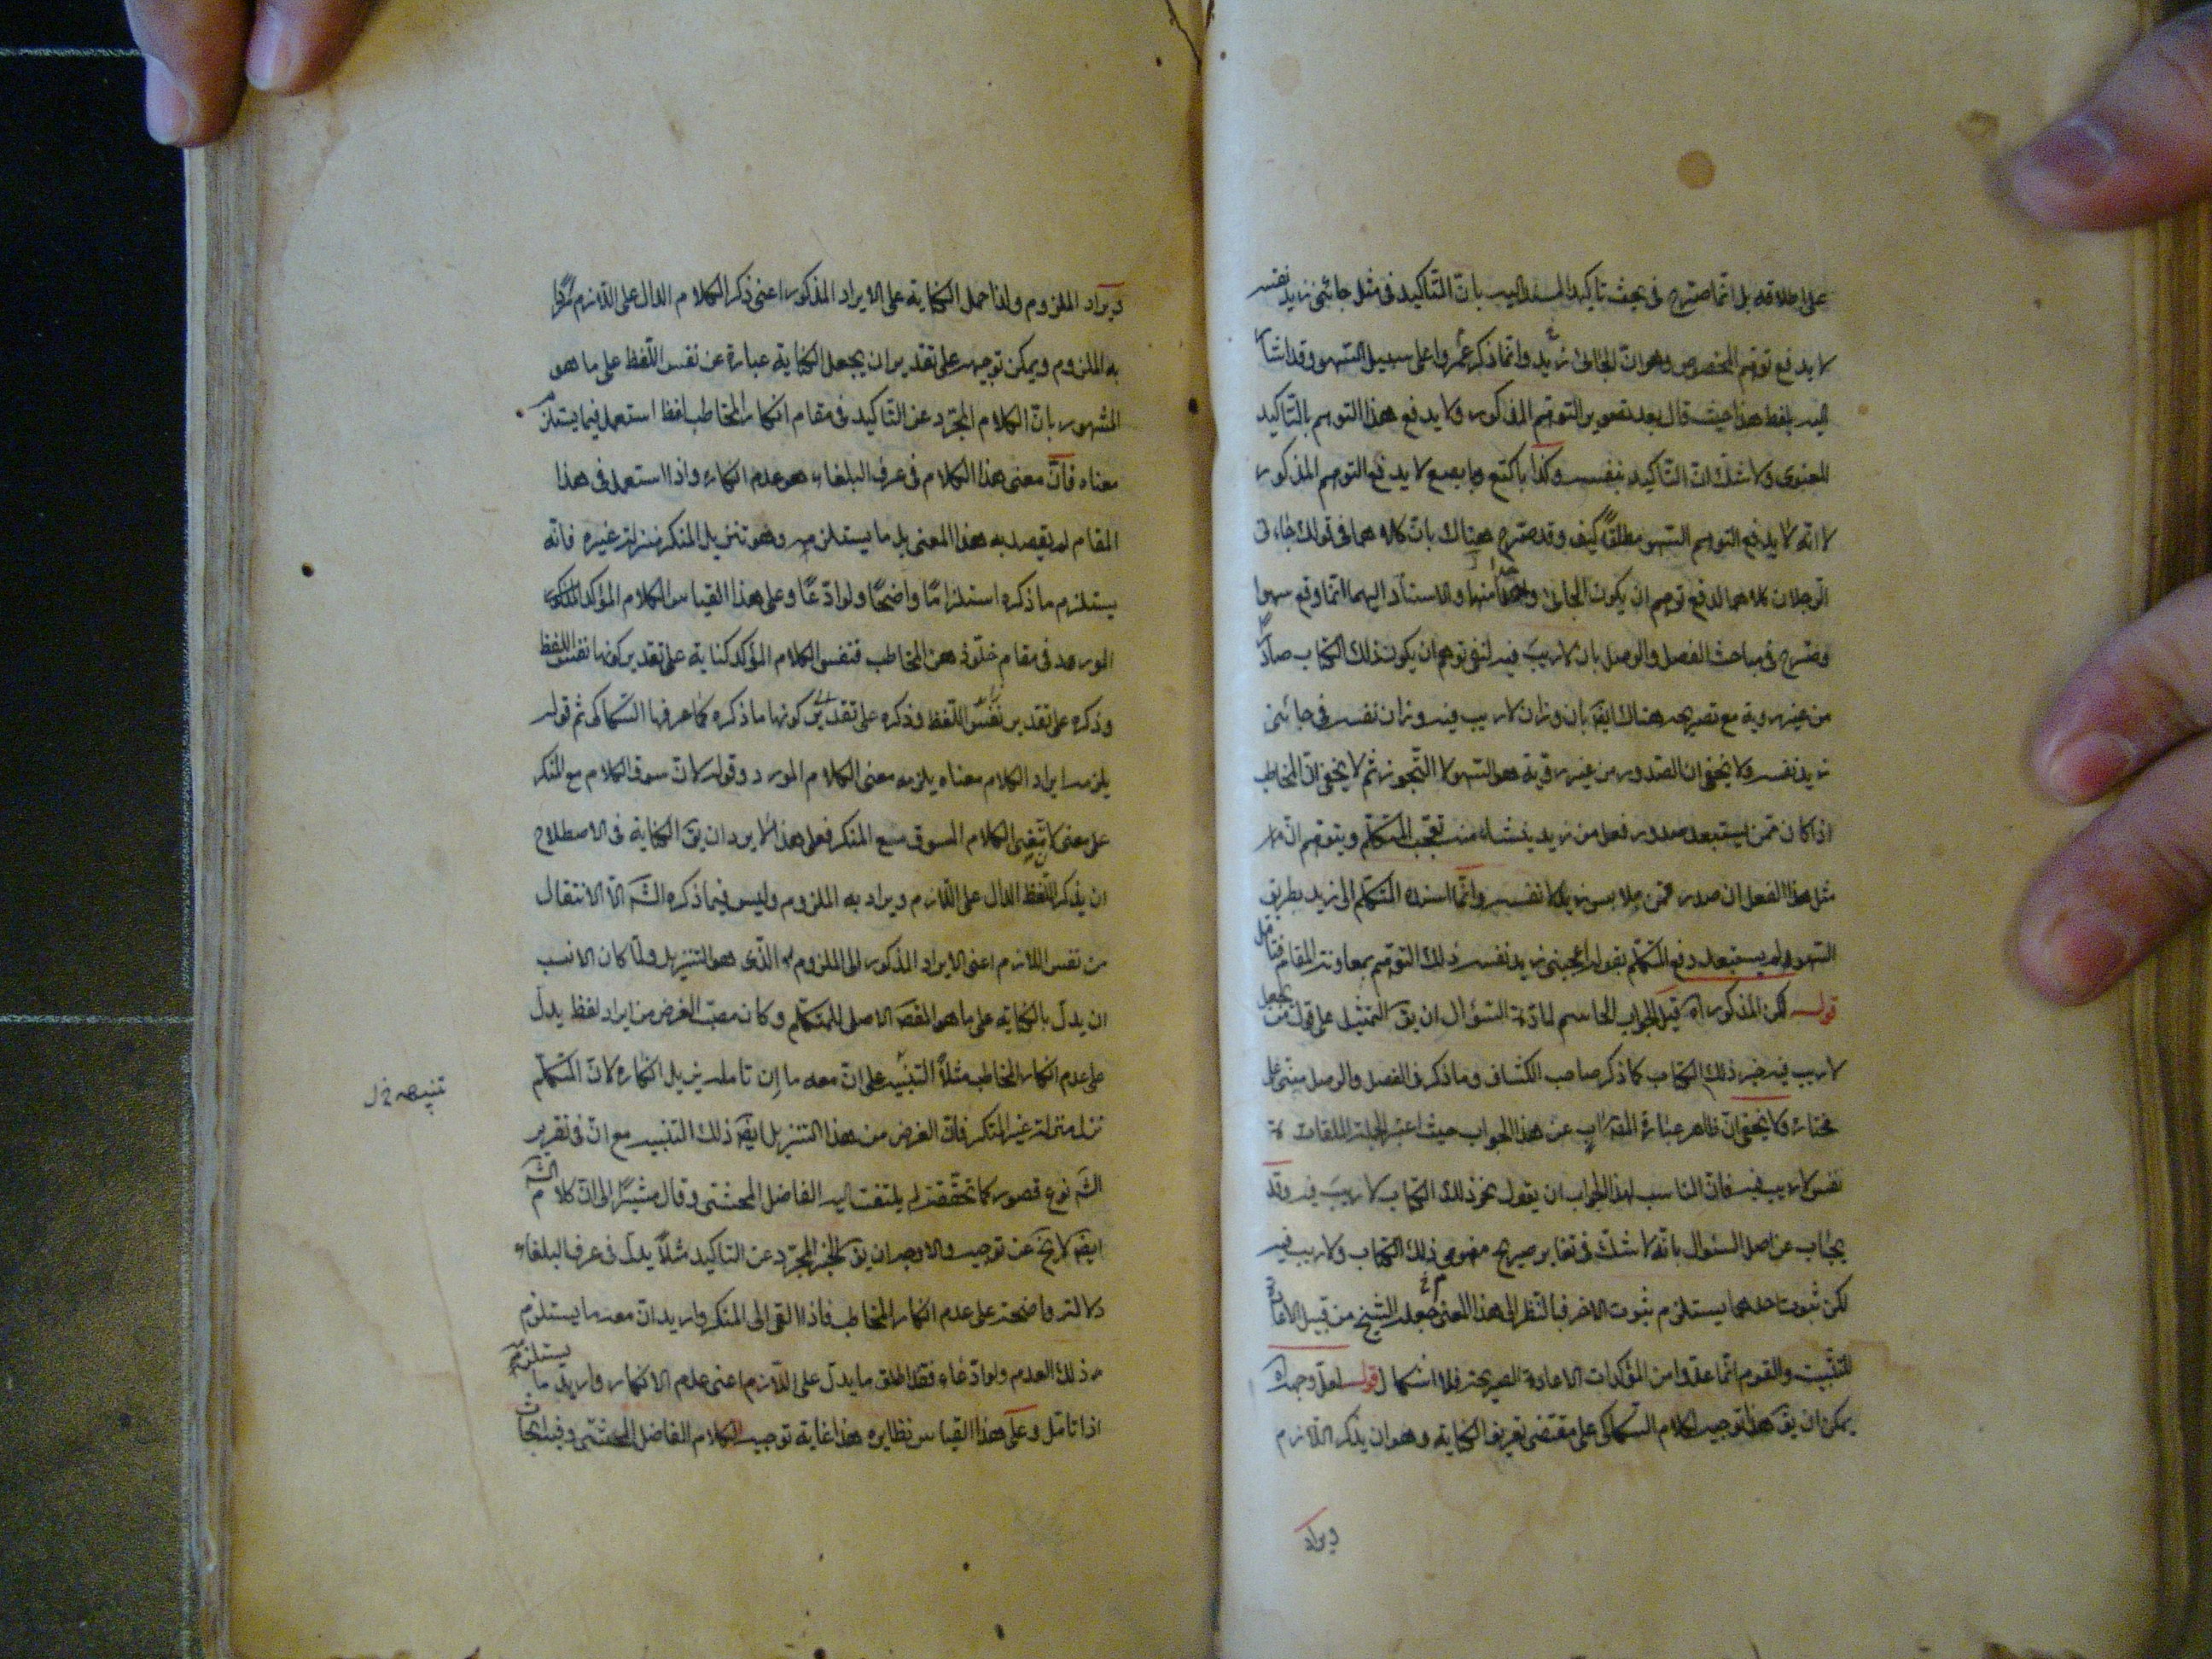 على اطلاقه بل انما صرح فى بحث تاكيد المسند اليه بان التاكيد فى مثل جائنى زيد نفسه
لا يدفع توهم التخصيص وهو ان الجائى زيد وانما ذكر عمروا على سبيل السهو وقد اشار
اليه بلفظ هذا حيث قال بعد تصوير التوهم المذكور ولا يدفع هذا التوهم بالتاكيد
المعنوى ولا شك ان التاكيد بنفسه وكذا باكتع وابصع لا يدفع التوهم المذكور
لا انه لا يدفع التوهم السهو مطلقا كيف وقد صرح هناك بان كلاهما فى قولك جاءنى
الرجلان كلاهما لدفع توهم ان يكون الجائى واحدا منهما والاسناد اليهما انما وقع سهوا
وصرح فى مباحث الفصل والوصل بان لا ريب فيه لنفى توهم ان يكون ذلك الكتاب صادرا
من غير روية مع تصريحه هناك ايضه بان وزان لا ريب فيه وزان نفسه فى جائنى
زيد نفسه ولا يخفى ان الصدور من غير روية هو السهو لا التجوز ثم لا يخفى ان المخاطب
اذا كان ممن يستبعد صدور فعل من زيد ينشاء منه تعجب المتكلم ويتوهم ان
مثل هذا الفعل ان صدر فمن ملابس زيد لا نفسه وانما اسنده المتكلم الى زيد بطريق
السهو لم يستبعد دفع المتكلم بقوله اعجبنى زيد نفسه ذلك التوهم بمعاونة المقام فتامل
قوله لكن المذكور اه قيل الجواب الحاسم لمادة السؤال ان يق التمثيل على قول من يجعل
لا ريب فيه خبر ذلك الكتاب كما ذكر صاحب الكشاف وما ذكر فى الفصل والوصل مبنى على
مختاره ولا يخفى ان ظاهر عبارة المصه اب عن هذا الجواب حيث اعتبر الجملة الملقات
نفس لا ريب فيه فان المناسب لهذا الجواب ان يقول نحو ذلك الكتاب لا ريب فيه وقد
يجاب عن اصل السئوال بانه لا شك فى تغاير صريح مفهومى ذلك الكتاب ولا ريب فيه
لكن ثبوت احدهما يستلزم ثبوت الاخر فبالنظر الى هذا المعنى جعله الشيخ من قبيل الاعادة
للتثبيت والقوم انما عدوا من المؤكدات الاعادة الصريحة فلا اشكال قوله لعل وجهه اه
يمكن ان يق هذا توجيه لكلام السكاكى على مقتضى تعريف الكناية وهو ان يذكر اللازم
ويراد
ويراد الملزوم ولذا حمل الكناية على الايراد المذكور اعنى ذكر الكلام الدال على اللازم مرادا
به الملزوم ويمكن توجيهه على تقدير ان يجعل الكناية عبارة عن نفس اللفظ على ما هو
المشهور بان الكلام المجرد عن التاكيد فى مقام انكار المخاطب لفظ استعمل فيما يستلزم
معناه فان معنى هذا الكلام فى عرف البلغاء هو عدم انكاره واذا استعمل فى هذا
المقام لم يقصد به هذا المعنى بل ما يستلزمه وهو تنزيل المنكر منزلة غيره فانه
يستلزم ما ذكره استلزاما واضحا ولو ادعاء وعلى هذا القياس الكلام المؤكد المذكور
المورد فى مقام خلو ذهن المخاطب فنفس الكلام المؤكد كناية على تقدير كونها نفس اللفظ
وذكره على تقدير نفس اللفظ وذكره على تقدير كونها ما ذكره كما عرفها السكاكى ثم قوله
يلزمه ايراد الكلام معناه يلزمه معنى الكلام المورد وقوله لان سوق الكلام مع المنكر
على معنى الكلام المسوق مع المنكر فعلى هذا لا يرد ان يق الكناية فى الاصطلاح
ان يذكر اللفظ الدال على اللازم ويراد به الملزوم وليس فيما ذكره الشه الا الانتقال
من نفس اللازم اعنى الايراد المذكور الى الملزوم الذى هو التنزيل ولما كان الانسب
ان يدل بالكناية على ما هو المقصه الاصلى للمتكلم وكان مصب الغرض من ايراد لفظ يدل
على عدم انكار المخاطب مثلا التنبيه على ان معه ما ان تامله يزيل انكاره لان المتكلم
نزله منزلة غير المنكر فان الغرض من هذا التنزيل ايضه ذلك التنبيه مع ان فى تقرير
الشه نوع قصور كما تحققته لم يلتفت اليه الفاضل المحشى وقال مشيرا الى ان كلام الشه
ايضه لا يخ عن توجيه والاوجه ان يق الخبر المجرد عن التاكيد مثلا يدل فى عرف البلغاء
دلالة واضحة على عدم انكار المخاطب فاذا القى الى المنكر واريد ان معه ما يستلزم
ذلك العدم ولو ادعاء فقد اطلق ما يدل على اللازم اعنى عدم الانكار واريد ما يستلزمه
اذا تامل وعلى هذا القياس نظايره هذا غاية توجيه الكلام الفاضل المحشى وفيه ابحاث